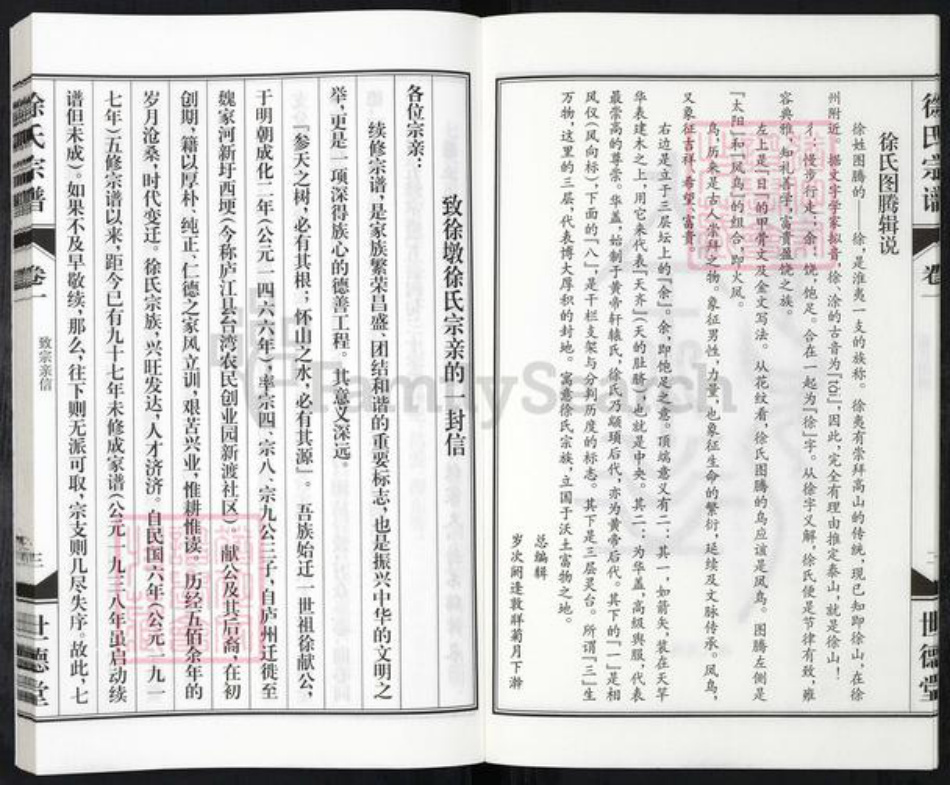 徐氏宗谱
卷一
二
世德堂
徐氏图腾辑说
徐姓图腾的
徐,是淮夷一支的族称。徐夷有崇拜高山的传统,现已知即徐山,在徐
州附近。据文字学家拟音,徐、涂的古音为
因此,完全有理由推定泰山,就是徐山!
彳:慢步行走;余:饶,饱足。合在一起为『徐』字。从徐字义解,徐氏便是节律有致,雍
容典雅,知礼善学,富贵盈饶之族。
左上是『日』的甲骨文及金文写法。从花纹看,徐氏图腾的鸟应该是凤鸟。图腾左侧是
『太阳』和『凤鸟』的组合,即火凤。
鸟,历来是古人崇拜之物。象征男性,力量,也象征生命的繁衍,延续及文脉传承、凤鸟,
又象征吉祥、希望、富贵。
右边是立于三层坛上的『余』。余,即饱足之意。顶端意义有二:其一,如箭矢,装在天竿
华表建木之上,用它来代表『天齐』(天的肚脐),也就是中央。其二:为华盖,高级舆服,代表
最崇高的尊崇。华盖,始制于黄帝轩辕氏,徐氏乃颛顼后代,亦为黄帝后代。其下的『一』是相
风仪(风向标),下面的『八』,是干栏支架与分判历度的标志。其下是三层灵台。所谓『三』生
万物,这里的三层,代表博大厚积的封地。寓意徐氏宗族,立国于沃土富物之地。
总编辑
岁次阏逢敦牂菊月下澣
致徐墩徐氏宗亲的一封信
各位宗亲:
续修宗谱,是家族繁荣昌盛、团结和谐的重要标志,也是振兴中华的文明之
举,更是一项深得族心的德善工程。其意义深远。
『参天之树,必有其根;怀山之水,必有其源』。吾族始迁一世祖徐献公,
于明朝成化二年(公元一四六六年),率宗四、宗八、宗九公三子,自庐州迁徙至
魏家河新圩西埂(今称庐江县台湾农民创业园新渡社区)。献公及其后裔,在初
创期,籍以厚朴、纯正、仁德之家风立训,艰苦兴业,惟耕惟读。历经五佰余年的
岁月沧桑,时代变迁。徐氏宗族,兴旺发达,人才济济。自民国六年(公元一九一
七年)五修宗谱以来,距今已有九十七年未修成家谱(公元一九三八年虽启动续
谱但未成)。如果不及早敬续,那么,往下则无派可取,宗支则几尽失序。故此,七
徐氏宗谱
卷一
致宗亲信
三
世德堂
FamilySearch